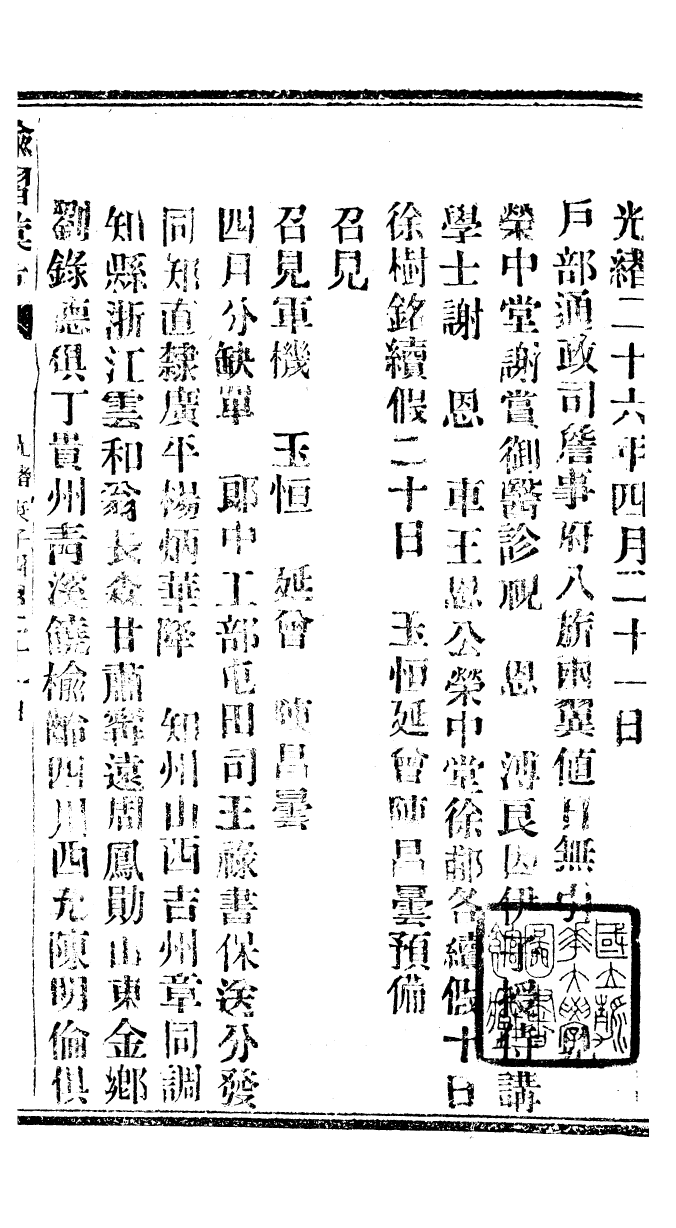 光緒二十六年四月二十一日
戶部通政司詹事府八旂兩翼値日無引
榮中堂謝賞御醫診視 恩 溥良因伊子授侍講
學士謝 恩 車王恩公榮中堂徐郙各續假十日
徐樹銘續假二十日 玉恒延曾陳昌曇預備
召見
召見軍機 玉恒 延曾 陳昌曇
四月分缺單 郎中工部屯田司王祿書保送分發
同知直隸廣平楊炳華降 知州山西吉州章同調
知縣浙江雲和翁長森甘肅寗遠周鳳勛山東金鄉
劉錄德俱丁貴州青溪饒榆齡四川西充陳明倫俱
諭摺彙存
光緒庚子四月二十一日
國立清華大學圖書館藏